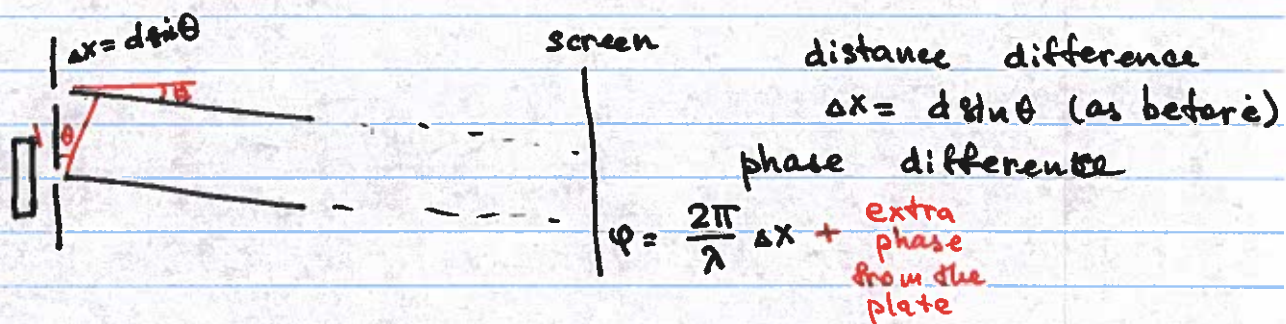 Δx = d sinθ
θ
d
θ
screen
distance difference
Δx = d sinθ (as before)
phase difference
φ = 2π/λ Δx + extra
phase
from the
plate